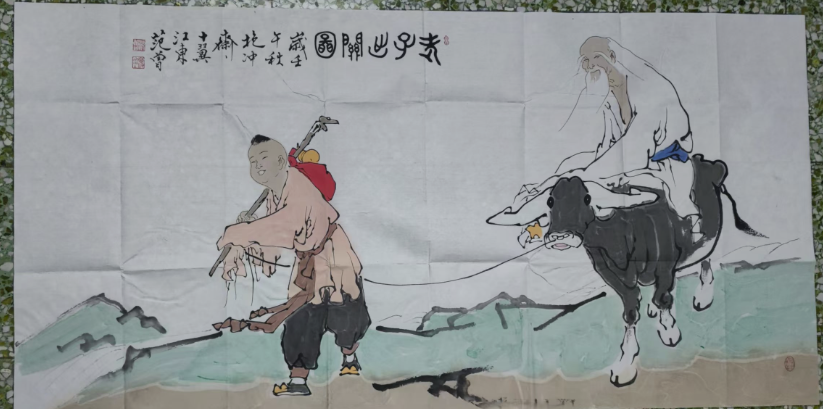 老子出關圖
歲壬
午秋
抱冲
齋、
十翼
江東
范曾